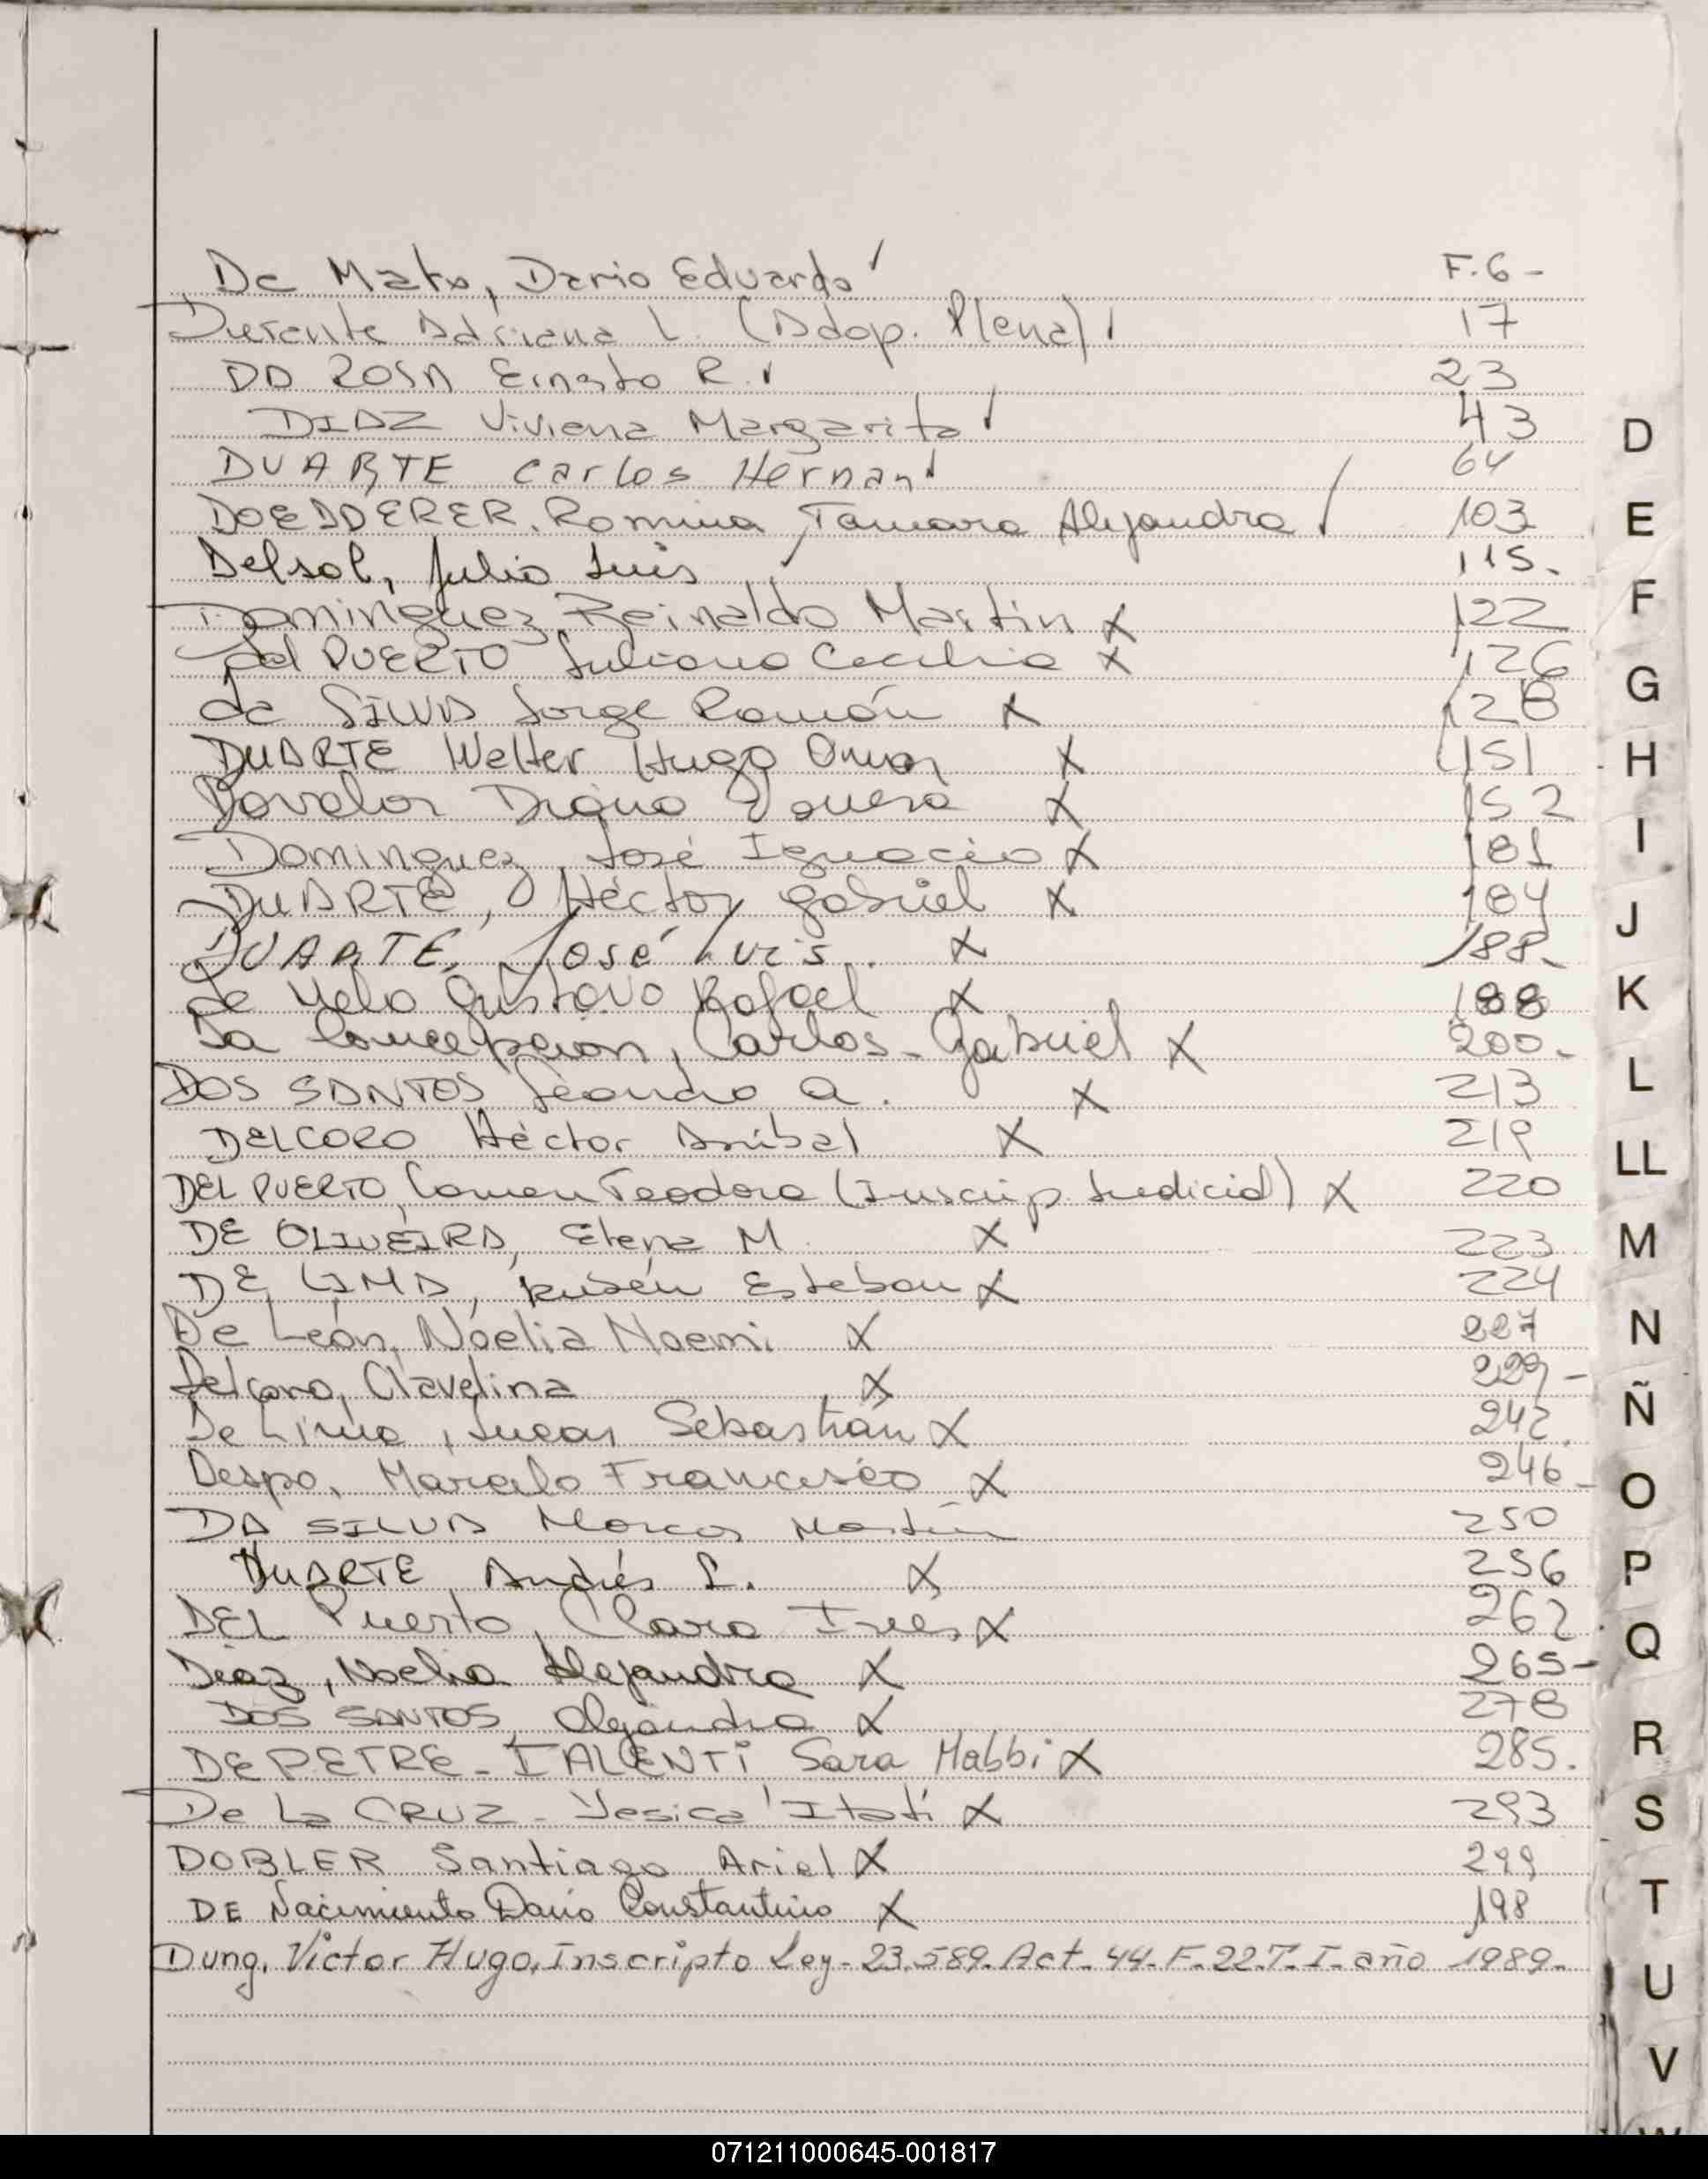 De Mato, Dario Eduardo F.6-
Durante Adriana L. (Adop. Plena) 17
DA ROSA Ernesto R. 23
DIAZ Viviana Margarita 43
DUARTE Carlos Hernan 64
DOEDDERER. Romina, Tamara Alejandra 103
Delsol, Julio Luis 115.
Dominguez Reinaldo Martin X 122
del PUERTO Juliana Cecilia X 126
da SILVA Jorge Ramón X 128
DUARTE Walter Hugo Omar X 151
Diana X 152
Dominguez, José Ignacio X 181
DUARTE, Héctor Gabriel X 184
DUARTE, José Luis. X 188.
de Melo Gustavo Rafael X 188
Da Concepcion, Carlos-Gabriel X 200.
DOS SANTOS Leandro A. X 213
DELCORO Héctor Anibal X 219
DEL PUERTO, Carmen Teodora (Inscrip. Judicial) X 220
DE OLIVEIRA, Elena M. X 223
DE LIMA, Rubén Esteban X 224
De León, Noelia Noemi X 227
Delcoro, Clavelina X 229-
De Lima, Lucas Sebastián X 242.
Despo, Marcelo Francisco X 246-
DA SILVA Marcos Martín 250
DUARTE, Andrés L. X 256
DEL Puerto, Clara Inés X 262
Diaz, Noelia Alejandra X 265-
DOS SANTOS, Alejandra X 278
DEPETRE-TALENTI Sara Mabbi X 285.
De La CRUZ-Yesica Itatí X 293
DOBLER Santiago Ariel X 299
DE Nacimiento Dario Constantino X 198
Dung, Victor Hugo, Inscripto Ley-23.589. Act-44-F-22.T-I-año 1989-
D
E
F
G
H
I
J
K
L
LL
M
N
Ñ
O
P
Q
R
S
T
U
V
W
071211000645-001817